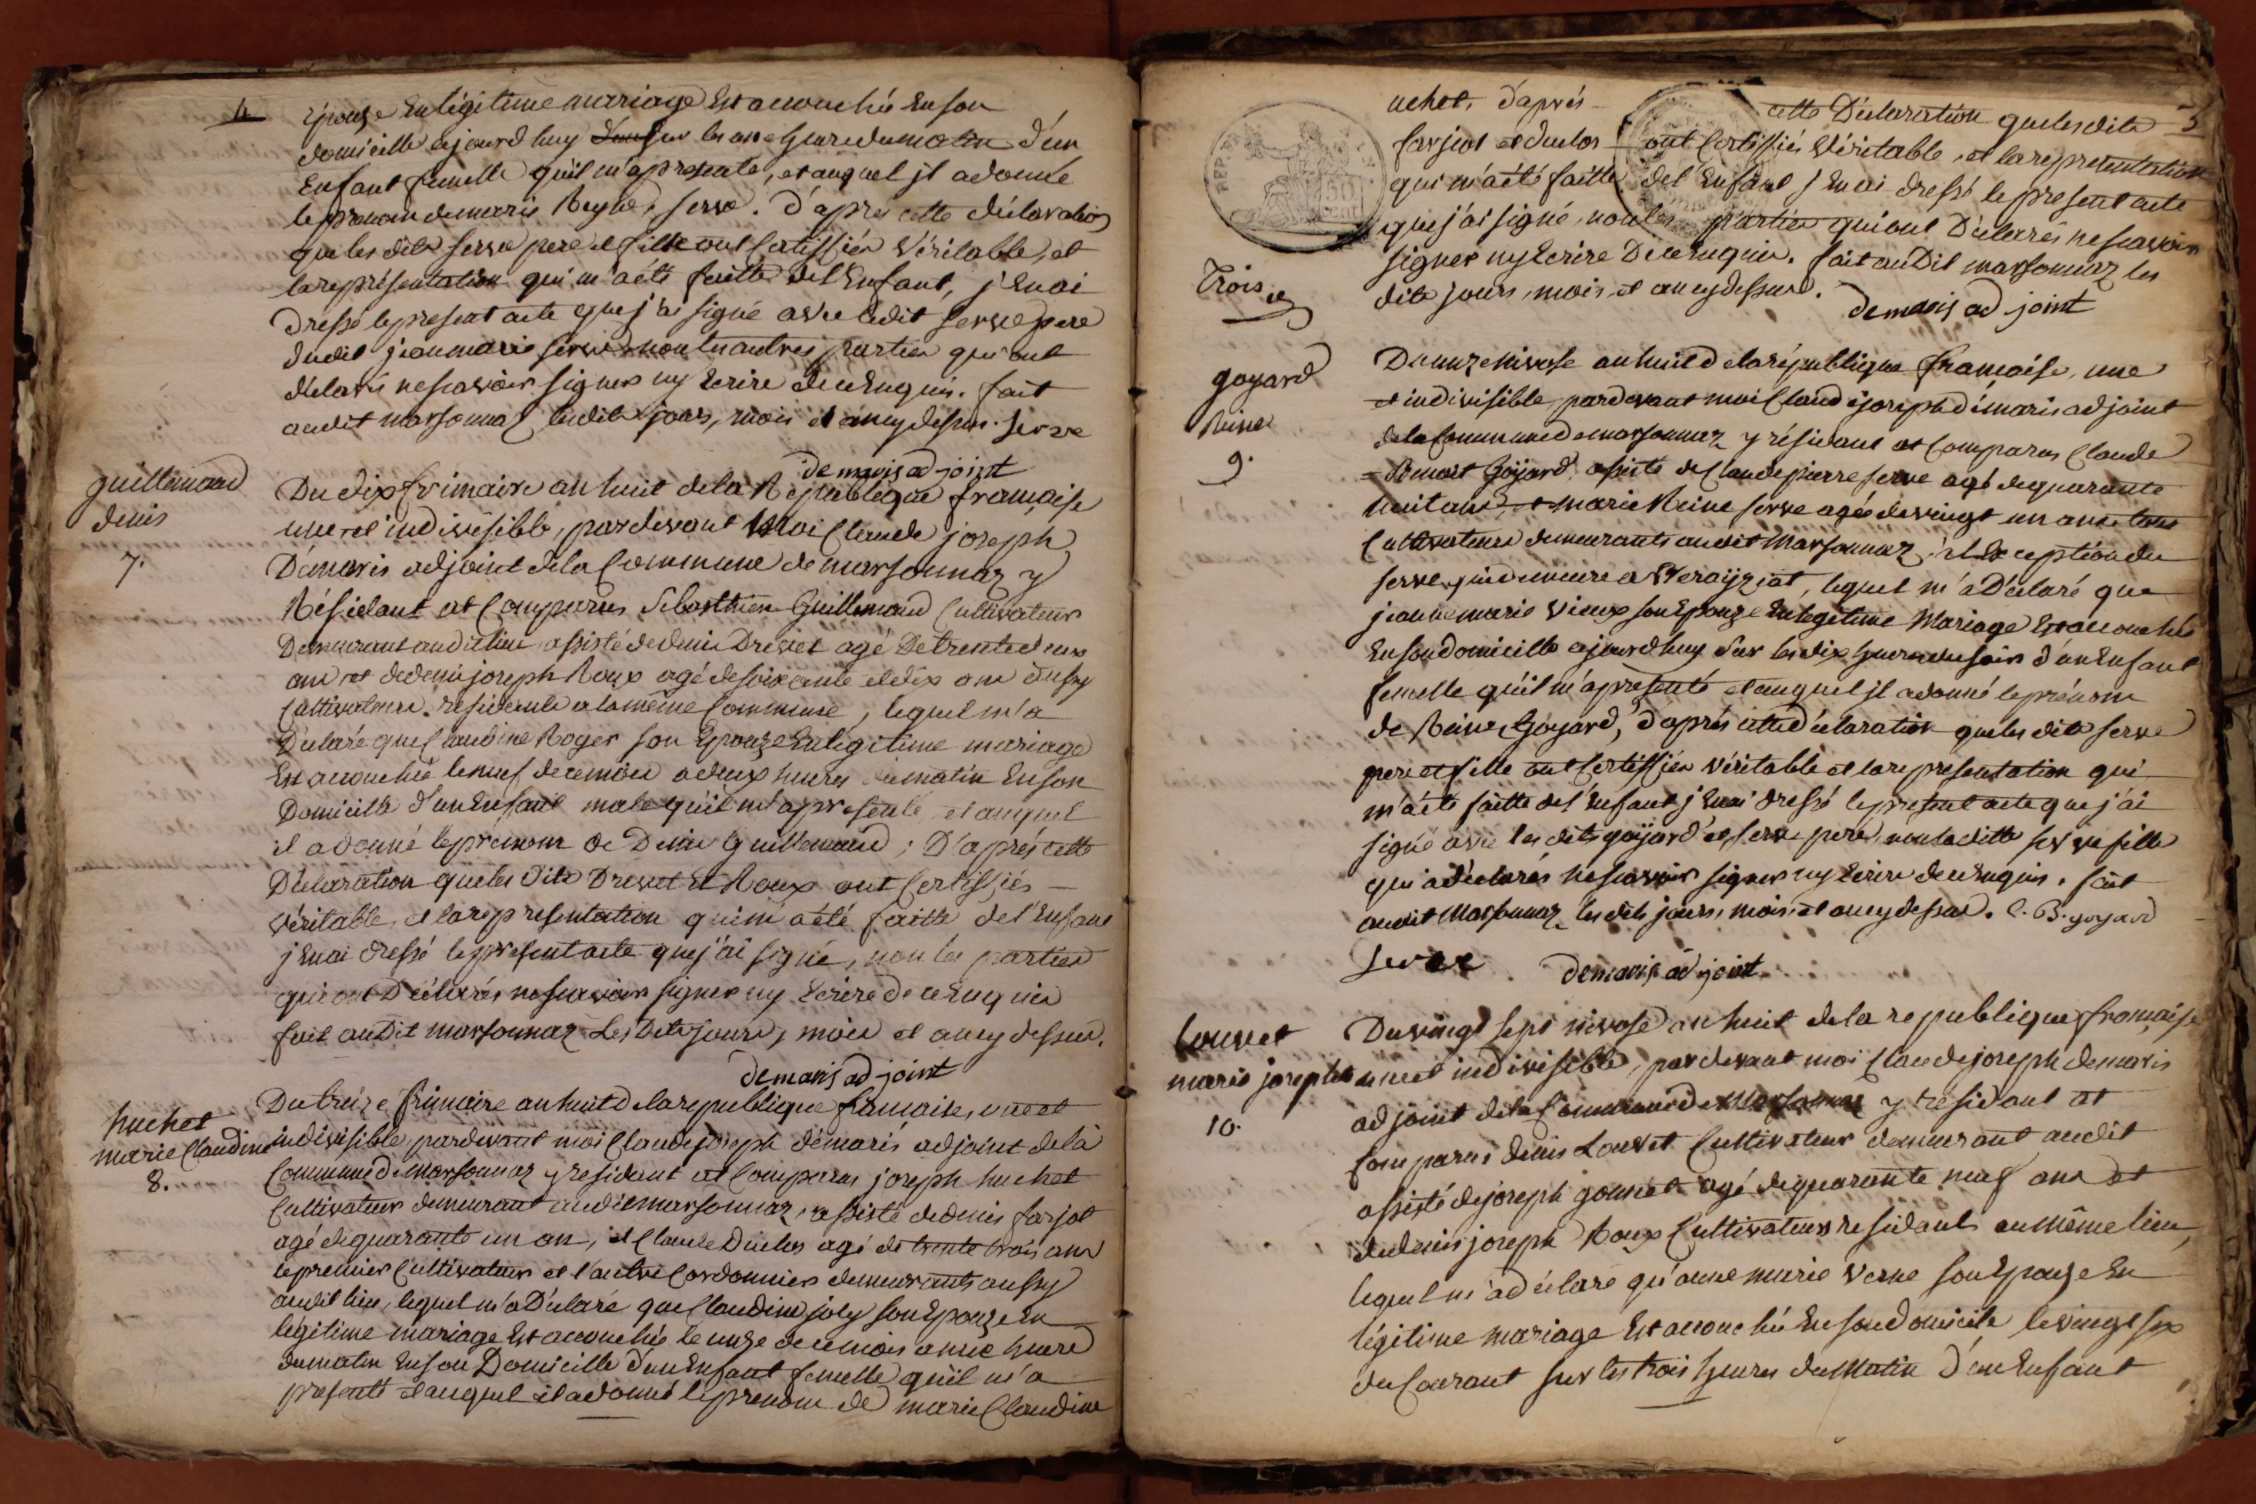 4
épouze en légitime mariage est accouchée en son
domicille ajourd'huy sur les onze heure du matin d'un
enfant femelle qu'il m'a présenté, et auquel jl a donné
le prenom de marie Reyne serve. d'après cette déclaration
que les dits serve pere et fille ont certiffiés véritable, et
la représentation qui m'a été faitte de l'enfant, j'en ai
dressé le present acte que j'ai signé avec ledit serve pere
dudit jean marie serve non les autres parties qui ont
déclaré ne scavoir signer ny ecrire de ce enquis. fait
audit marsonnaz lesdits jours, mois et an cy dessus. Serve
demaris ad joint
guillemaud
denis
7.
Du dix frimaire an huit de la Republique française
une et indivisible, pardevant Moi Claude joseph
Démaris adjoint de la Commune de marsonnaz y
Résidant at Comparus Sébasthien Guillemaud Cultivateur
Demeurant audit lieu assisté de denis Drevet agé De trente deux
ans et de denis joseph Roux agé de soixante et dix ans aussy
Cultivateurs residents a la même Commune, lequel m'a
Déclaré que Claudine Roger son Epouze En légitime mariage
Est accouchée le neuf de ce mois a deux heures du matin En son
Domicille d'un Enfant male qu'il m'a présenté et auquel
il a donné le prenom de Denis Guillemaud; D'après cette
Déclaration que les dits Drevet et Roux ont Certiffiés
véritable, et la representation qui m'a été faitte de l'Enfant
j'En ai dressé le present acte que j'ai signé, non les parties
qui ont Déclarés ne scavoir signer ny Ecrire De ce Enquis
fait audit marsonnaz Les Dits jours, mois et an cy dessus.
demaris ad joint
huchet
marie Claudine
8.
Du treize frimaire an huit de la republique francaise, une et
indivisible pardevant moi Claude joseph démaris adjoint de la
Commune de Marsonnaz y resident at Comparus joseph huchet
Cultivateur demeurant audit marsonnaz, assisté de denis farjot
agé de quarante un an, et Claude Duclos agé de trente trois ans
le premier Cultivateur et l'autre Cordonnier demeurants aussy
audit lieu, lequel m'a Déclaré que Claudine joly son Epouze En
légitime mariage Est accouchée le onze de ce mois a onze heures
du matin En son Domicille d'un Enfant femelle qu'il m'a
presenté et auquel il a donné le prenom de marie Claudine
5
uchet, d'après cette Déclaration que les dits
farjot et duclos ont Certiffiés véritable, et la representation
qui m'a été faitte de l'Enfant j'En ai dressé le present acte
que j'ai signé, non les parties qui ont Déclarés ne scavoir
signer ny Ecrire De ce enquis. fait au Dit marsonnaz les
dits jours, mois et an cy dessus.
demaris ad joint
REP. FRA.
Trois
goyard
Reine
9.
Du onze nivose an huit de la république française, une
et indivisible, pardevant moi Claude joseph démaris adjoint
de la Commune de marsonnaz y résidant at Comparus Claude
Benoit Goyard, assisté de Claude pierre serve agé de quarante
huit ans, et marie Reine serve agée de vingt un ans tous
Cultivateurs demeurants audit Marsonnaz, a l'Exception du
serve qui demeure a Veraÿziat, lequel m'a Déclaré que
jeanne marie vieux son Epouze En legitime Mariage Est accouchée
En son domicille ajourd'huy sur les dix heures du soir d'un Enfant
femelle qu'il m'a presenté et auquel jl a donné le prénom
de Reine Goyard, d'après cette déclaration que les dits serve
pere et fille ont Certiffiés véritable et la representation qui
m'a été faitte de l'Enfant j'En ai dressé le present acte que j'ai
signé avec les dits goÿard et serve pere, non la ditte serve fille
qui a déclarés ne scavoir signer ny Ecrire de ce Enquis. fait
audit Marsonnaz les dits jours mois et an cy dessus. C. B. goyard
Serve demaris ad joint
Louvet
marie josephte
10.
Du vingt sept nivose an huit de la republique française
une et indivisible, pardevant moi Claude joseph demaris
adjoint de la Commune de Marsonnaz y résidant at
Comparus denis Louvet Cultivateur demeurant audit
assisté de joseph gonnet agé de quarante neuf ans et
de denis joseph Roux Cultivateurs residants au même lieu,
lequel m'a déclaré qu'anne marie verne son Epouze En
légitime mariage Est accouchée En son domicile le vingt six
du Courant sur les trois heures du Matin d'un Enfant